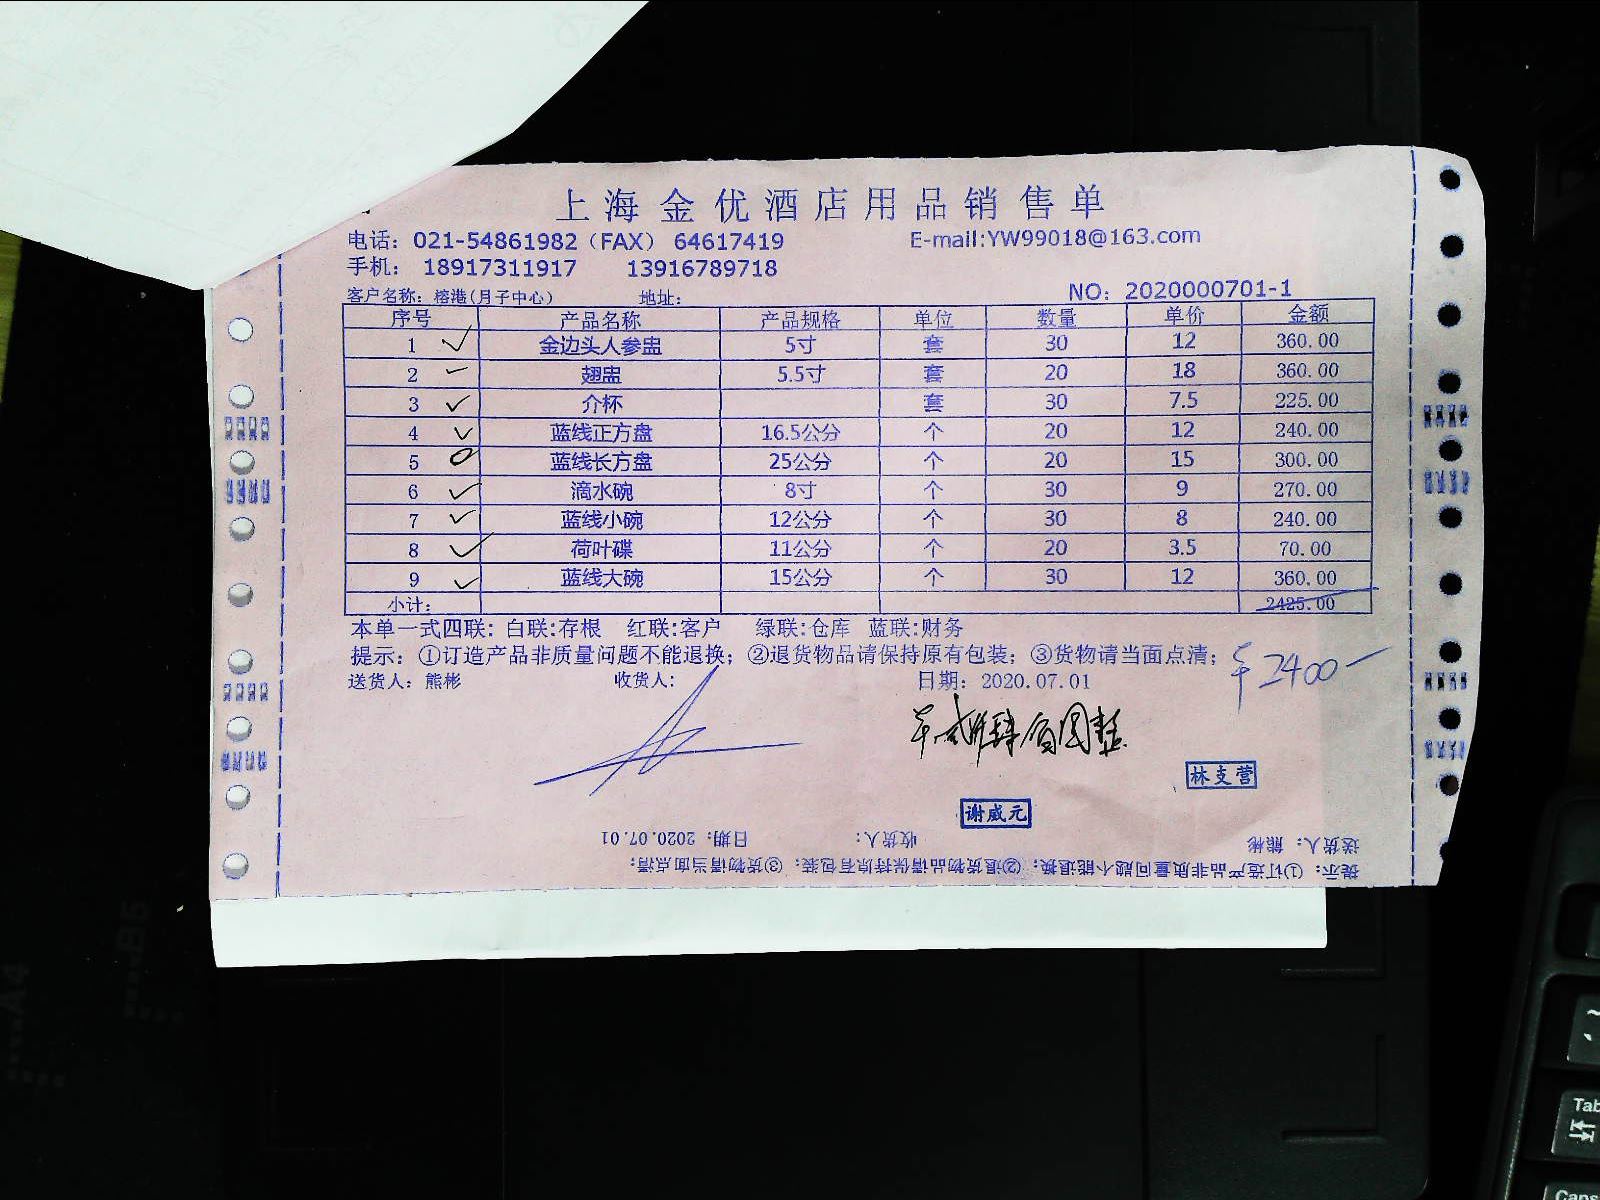 上海金优酒店用品销售单
电话：021-54861982（FAX） 64617419 E-mail:YW99018@163.com
手机： 18917311917 13916789718
客户名称：榕港(月子中心) 地址： NO：2020000701-1
序号 产品名称 产品规格 单位 数量 单价 金额
1 金边头人参盅 5寸 套 30 12 360.00
2 翅盅 5.5寸 套 20 18 360.00
3 介杯 套 30 7.5 225.00
4 蓝线正方盘 16.5公分 个 20 12 240.00
5 蓝线长方盘 25公分 个 20 15 300.00
6 滴水碗 8寸 个 30 9 270.00
7 蓝线小碗 12公分 个 30 8 240.00
8 荷叶碟 11公分 个 20 3.5 70.00
9 蓝线大碗 15公分 个 30 12 360.00
小计： 2425.00
本单一式四联: 白联:存根 红联:客户 绿联:仓库 蓝联:财务
提示：①订造产品非质量问题不能退换；②退货物品请保持原有包装；③货物请当面点清；
¥2400-
送货人：熊彬 收货人： 日期：2020.07.01
林支营
谢威元
送货人：熊彬 收货人： 日期：2020.07.01
提示：①订造产品非质量问题不能退换；②退货物品请保持原有包装；③货物请当面点清；
A4
B5
Tab
Caps